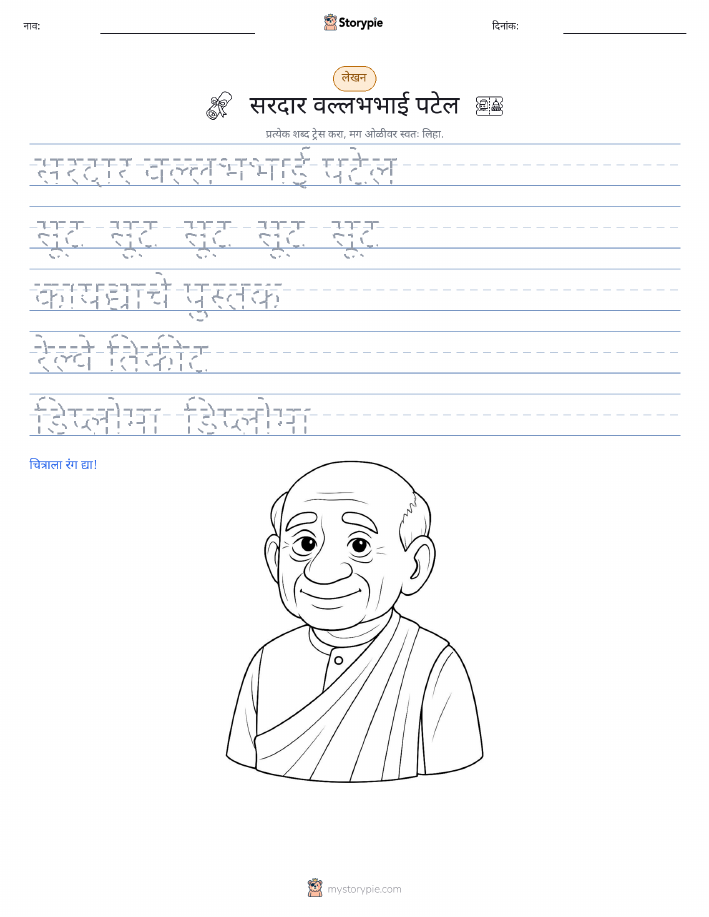 नाव:
Storypie
दिनांक:
लेखन
सरदार वल्लभभाई पटेल
प्रत्येक शब्द ट्रेस करा, मग ओळीवर स्वतः लिहा.
सरदार वल्लभभाई पटेल
सूट सूट सूट सूट सूट
कायद्याचे पुस्तक
रेल्वे तिकीट
डिप्लोमा डिप्लोमा
चित्राला रंग द्या!
mystorypie.com